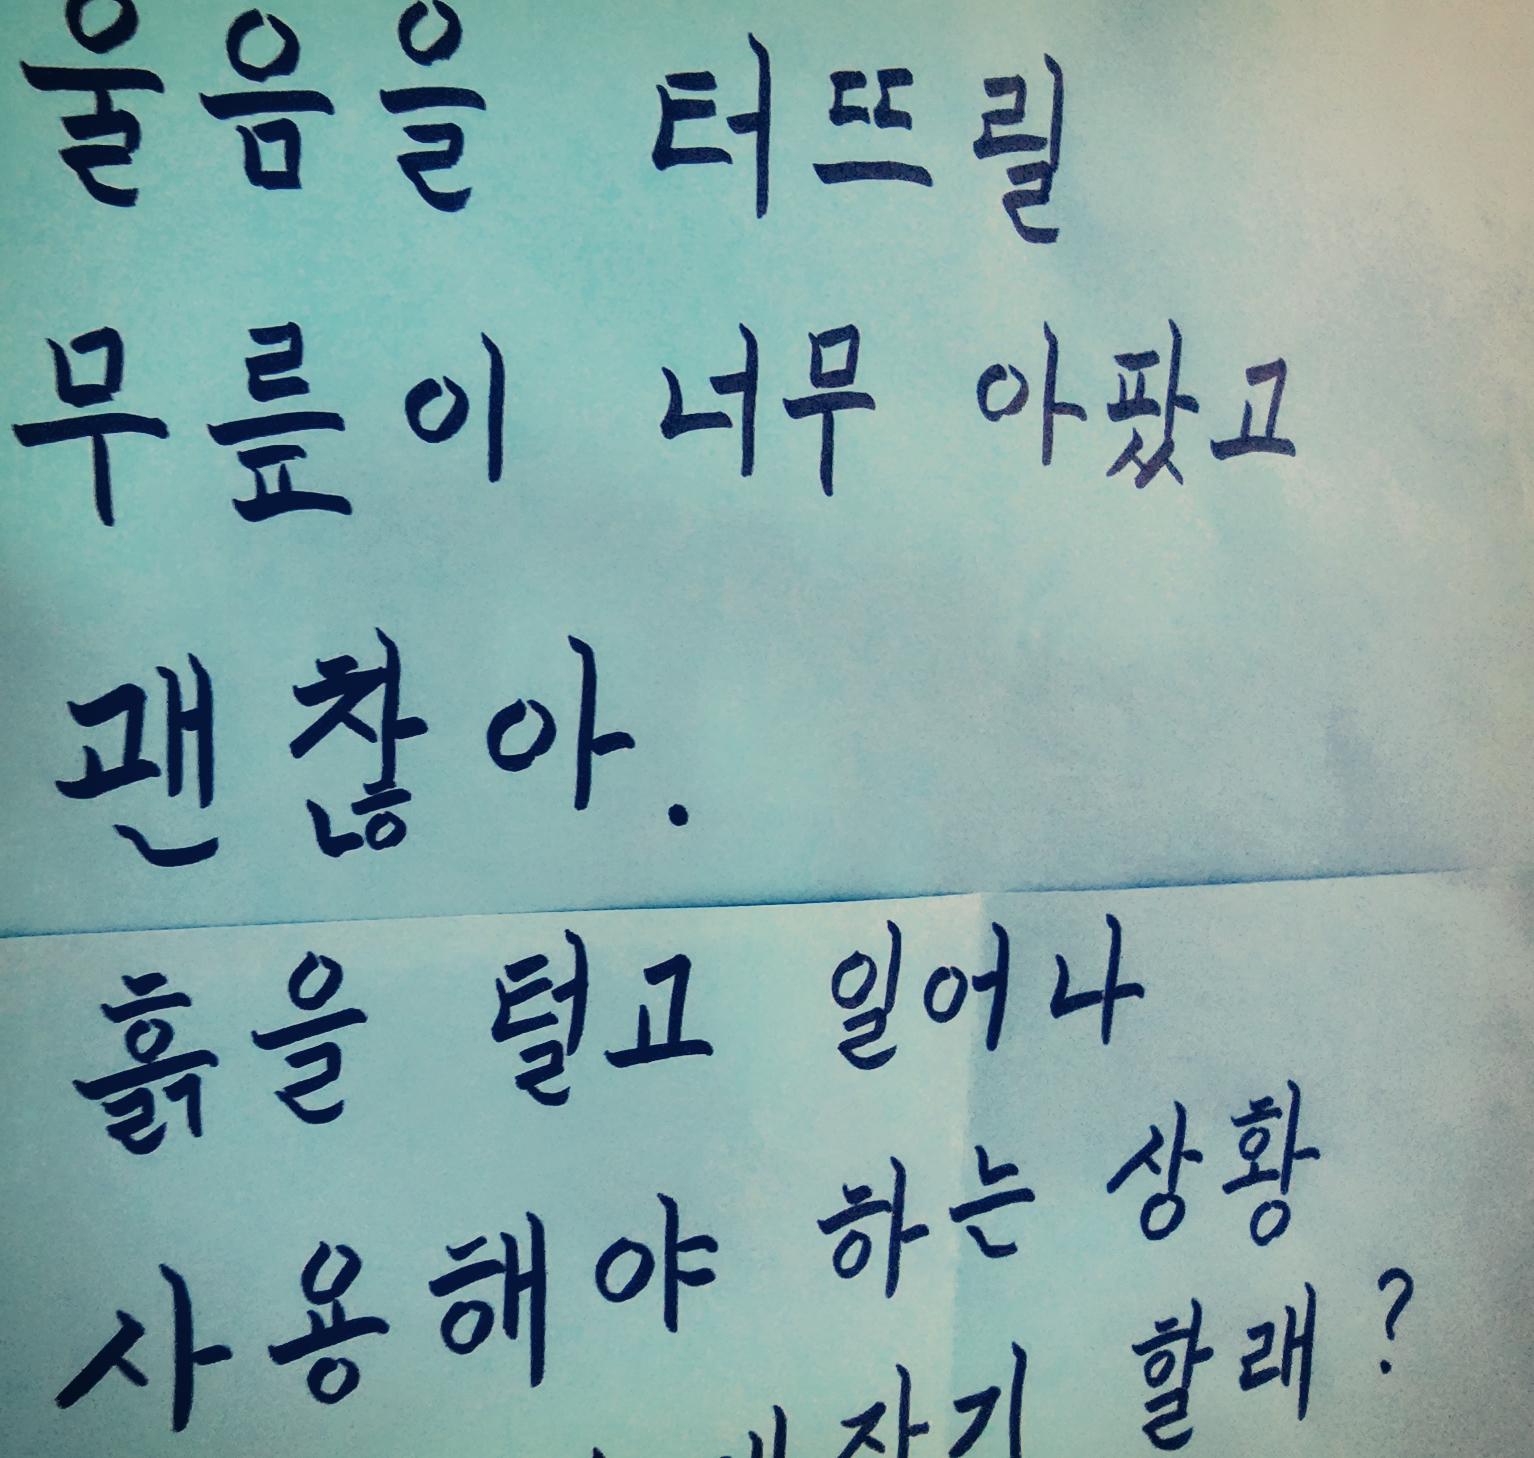 울음을 터뜨릴
무릎이 너무 아팠고
괜찮아.
흙을 털고 일어나
사용해야 하는 상황
할래?